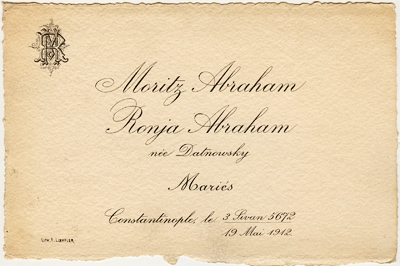 Moritz Abraham
Ronja Abraham
née Datnowsky
Mariés
Constantinople, le 3 Sivan 5672
19 Mai 1912
LITH. F. LOEFFLER